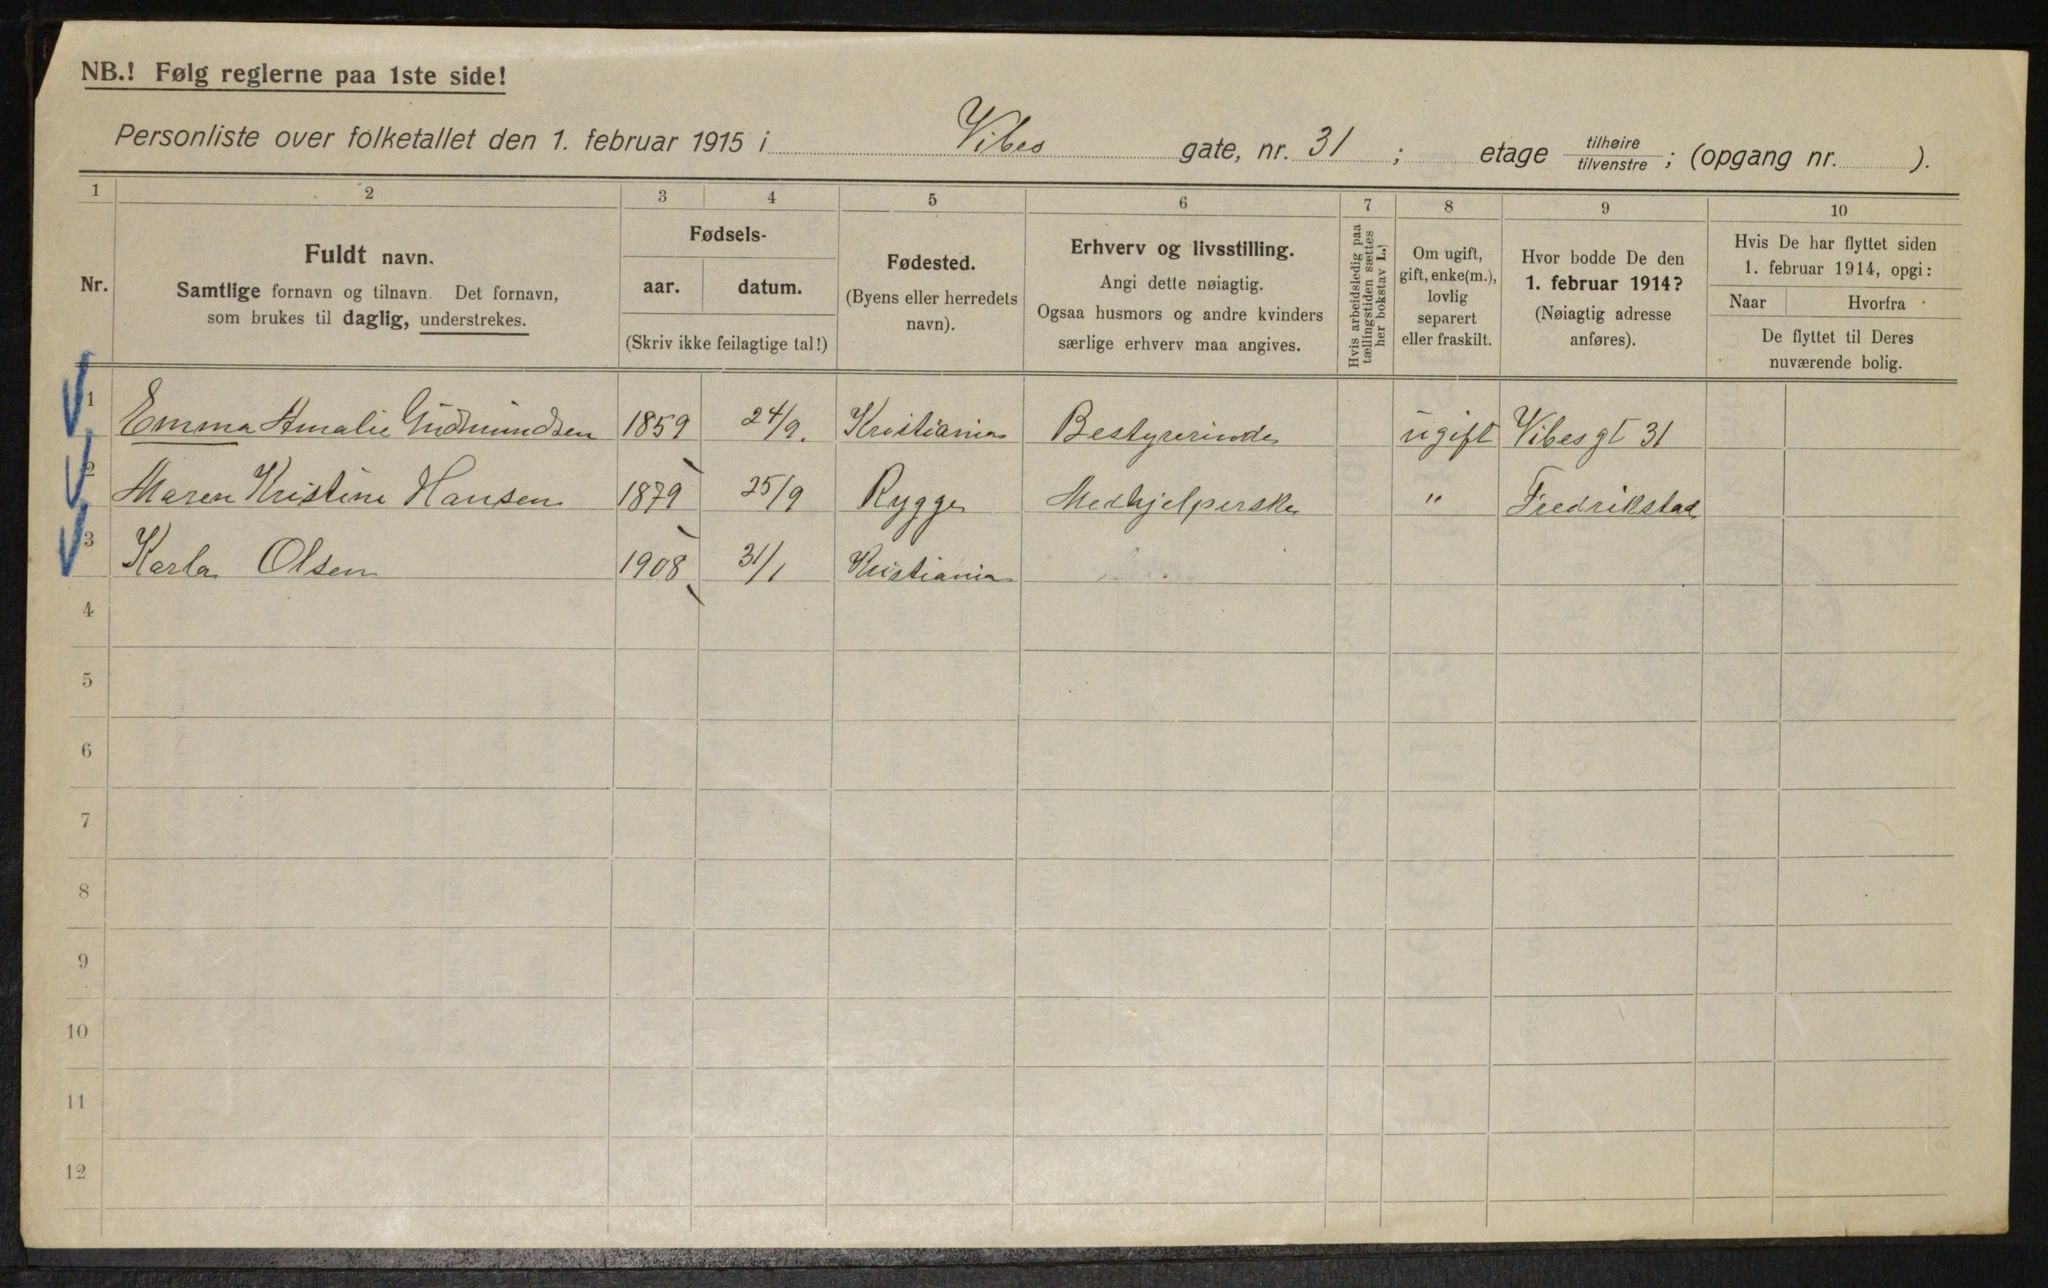 NB.! Følg reglerne paa 1ste side!
Personliste over folketallet den 1. februar 1915 i Vibes gate, nr. 31 ; etage tilhøire / tilvenstre ; (opgang nr. ).
1 2 3 4 5 6 7 8 9 10
Nr.
Fuldt navn.
Samtlige fornavn og tilnavn. Det fornavn,
som brukes til daglig, understrekes.
Fødsels-
aar. datum.
(Skriv ikke feilagtige tal!)
Fødested.
(Byens eller herredets
navn).
Erhverv og livsstilling.
Angi dette nøiagtig.
Ogsaa husmors og andre kvinders
særlige erhverv maa angives.
Hvis arbeidsledig paa
tællingstiden sættes
her bokstav L.!
Om ugift,
gift, enke(m.),
lovlig
separert
eller fraskilt.
Hvor bodde De den
1. februar 1914?
(Nøiagtig adresse
anføres).
Hvis De har flyttet siden
1. februar 1914, opgi:
Naar Hvorfra
De flyttet til Deres
nuværende bolig.
1 Emma Amalie Gudmundsen 1859 24/9. Kristiania Bestyrerinde ugift Vibesgt 31
2 Maren Kristine Hansen 1879 25/9 Rygge Medhjelperske " Fredrikstad
3 Karla Olsen 1908 31/1 Kristiania
4
5
6
7
8
9
10
11
12